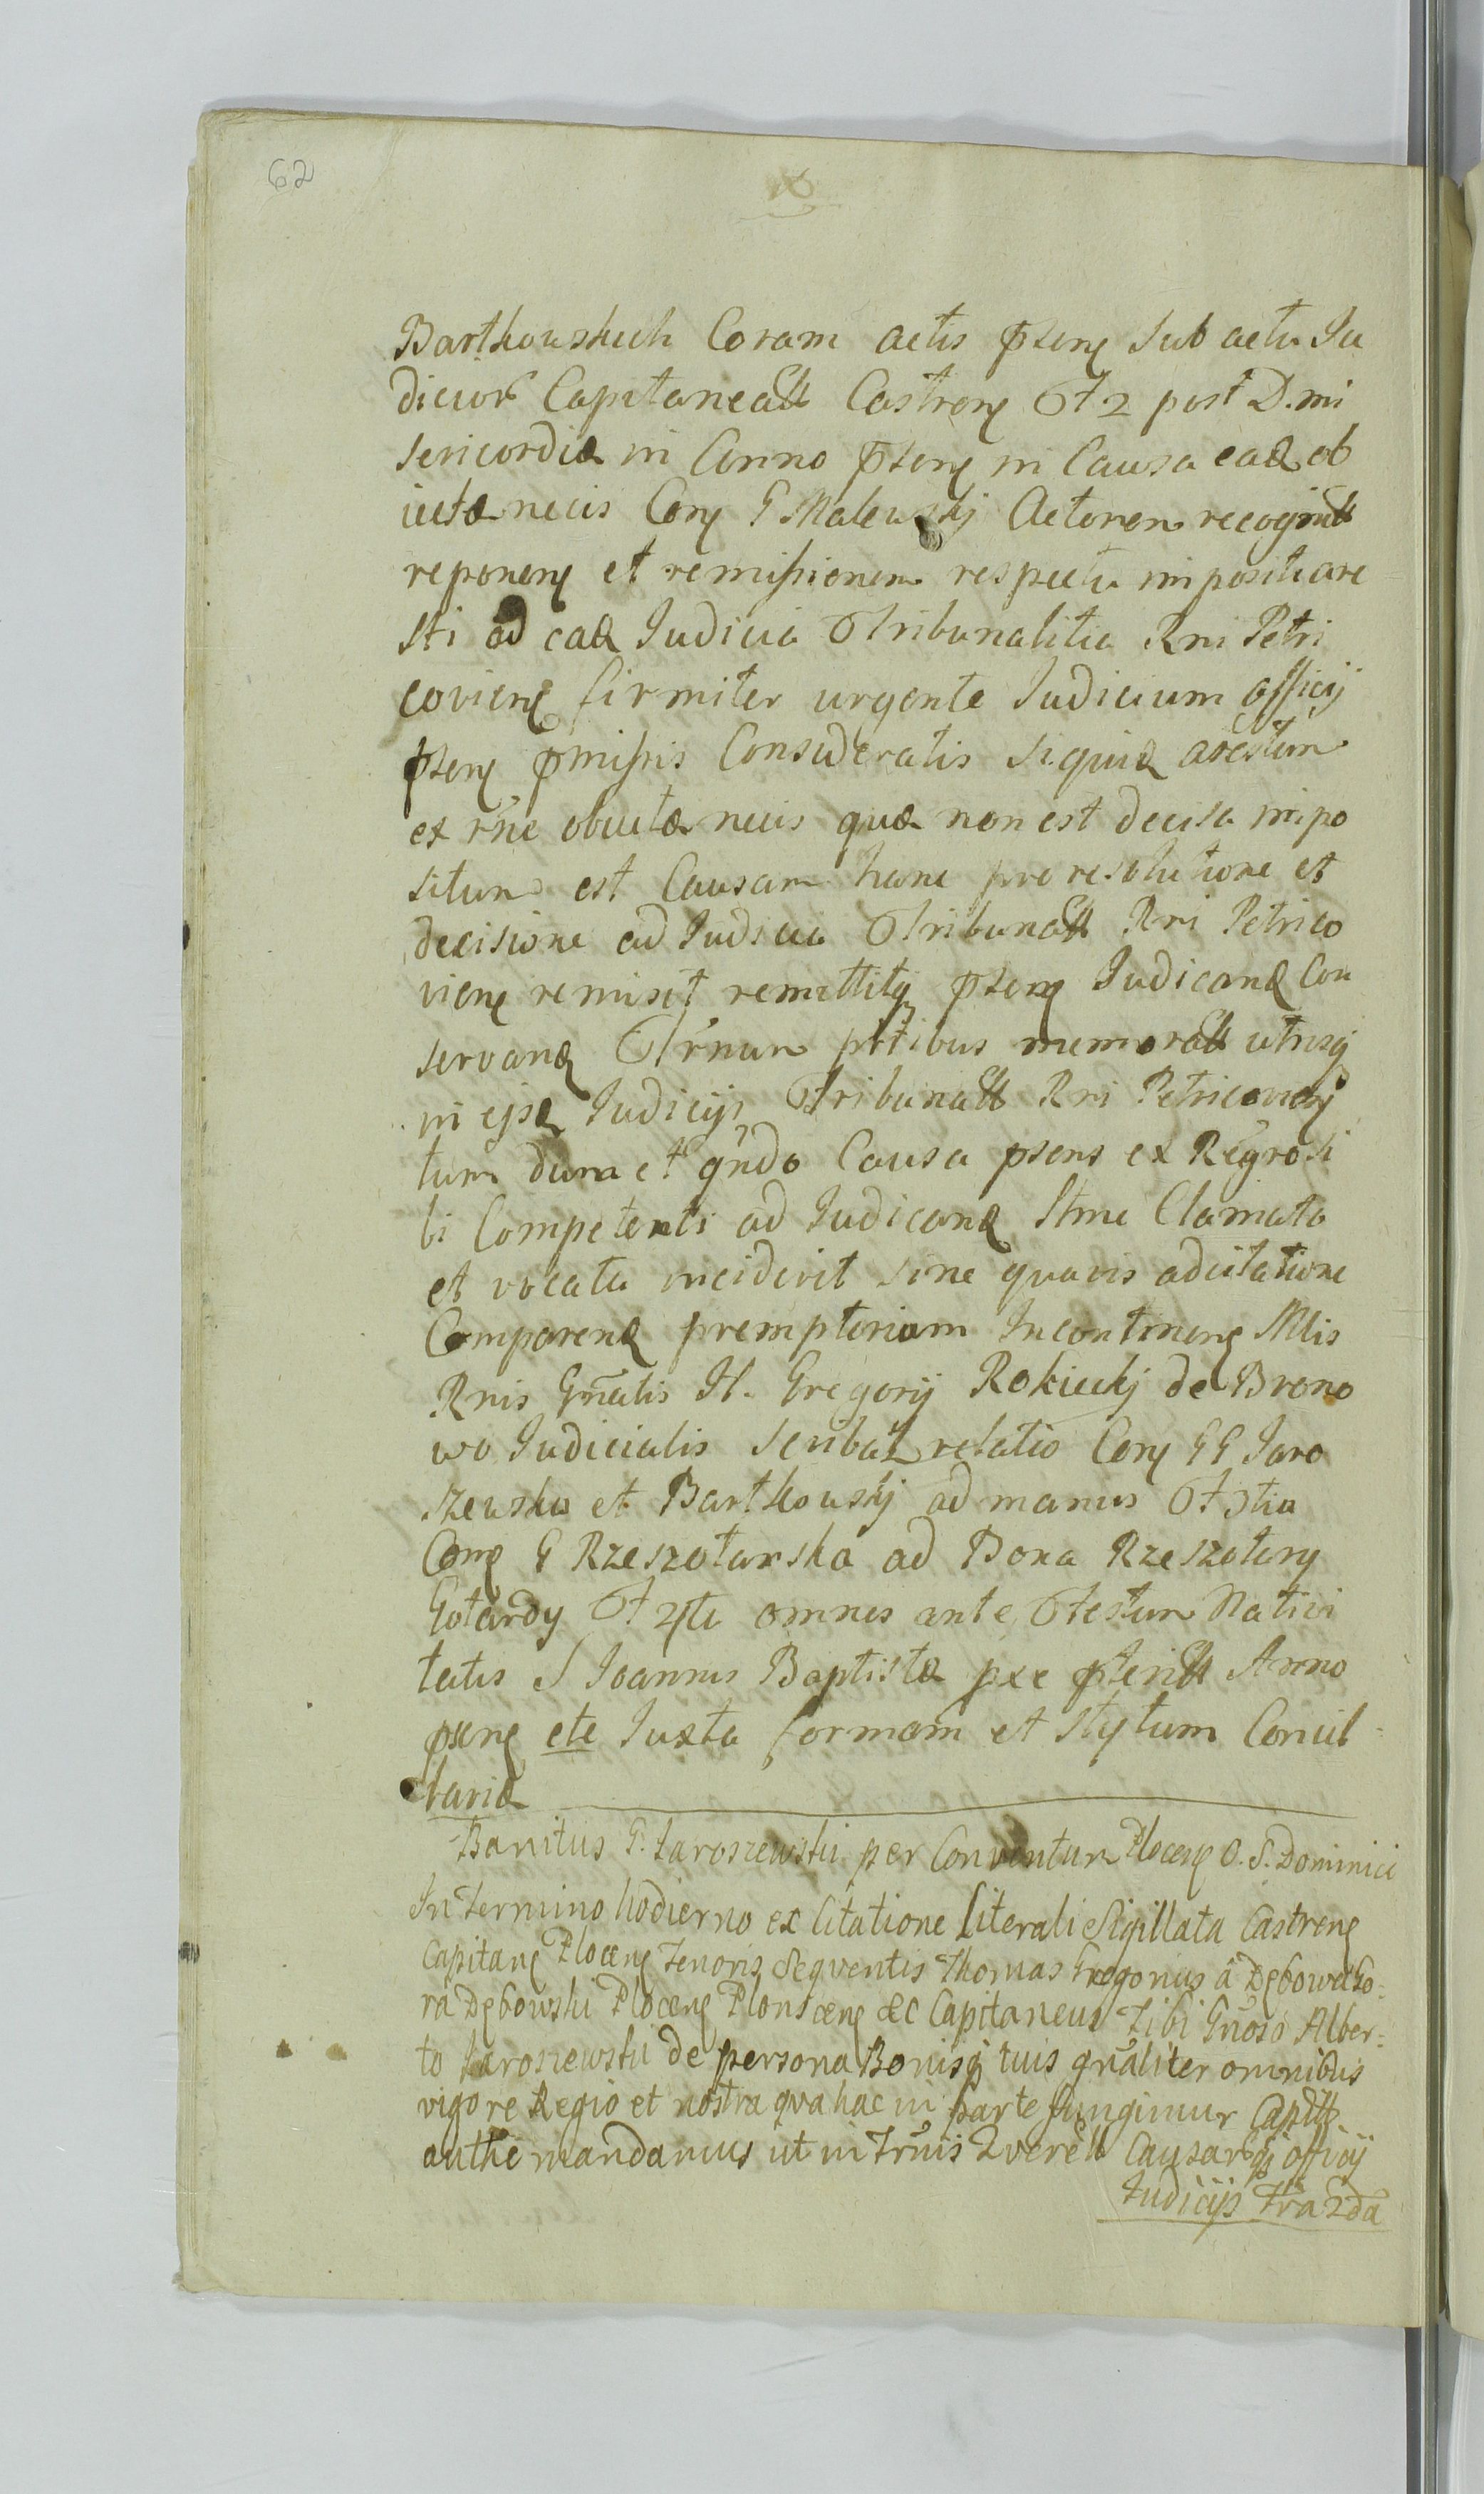 62
Barthowskich Coram actis pñtens Sub actu Iu
dicior Capitaneall Castrens F 2 post D. mi
sericordiæ in Anno pñtens in Causa ead ob
iectæ necis Cons G Malewskj Actorem recognitt
reponens et remissionem respectu impositi are
sti ad ead Iudicia Tribunalitia Rni Petri
coviens firmiter urgente Iudicium officij
pñtens pmissis Consideratis siquid arestum
ex rñe obiectæ necis quæ non est decisa impo
situm est Causam hanc pro resolutione et
decisione ad Iudicia Tribunall Rni Petrico
viens remisit remittitq pñtens Iudicand Con
servand Trnum ptibus memorall utrisq
in ejsd Iudicijs Tribunall Rni Petricoviens
tum dum et qñdo Causa psens ex Regro Si
bi Competenti ad Iudicand Stme Clamata
et vocata inciderit sine quavis adcitatione
Comparend premptorium Incontinens Mlis
Rnis Gñalis H. Gregorij Rokickj de Brono
wo Iudicialis Scribal relatio Cons GG Jaro
szewskis et Barthowskj ad manus F 3tia
Cons G Rzeszotarska ad Bona Rzeszotary
Gotardy F 4te omnes ante Festum Nativi
tatis S Ioannis Baptistæ pxe pteritt Anno
psens etc Iuxta formam et Stylum Concil
lariæ
Banitus G. Iaroszewski per Conventum Plocens O. S. Dominici
In Termino hodierno ex Citatione literali Sigillata Castrens
Capitans Plocens Tenoris Seqventis Thomas Gregorius â Dębowa Go:
ra Dębowski Plocens Plonscens &c Capitaneus Tibi Gñoso Alber:
to Iaroszewski de persona Bonisq tuis gñaliter omnibus
vigore Regio et nostra qva hac in parte fungimur Capitt
authe mandamus ut in Trñis Qverell Causarq officij
Iudicijs Fra 2da